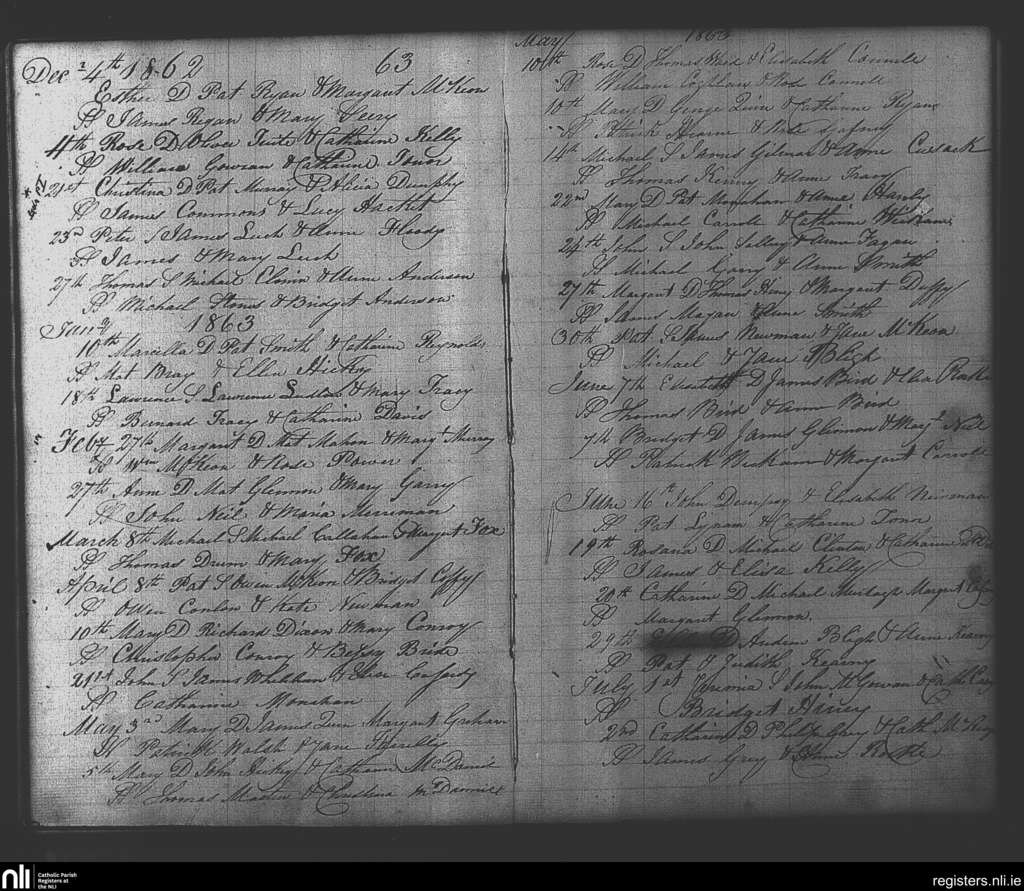 Dec 4th 1862 63
Esther D Pat Ryan & Margaret McKeon
Sp James Regan & Mary Geery
4th Rose D Oliver Tuite & Catharine Kelly
Sp William Gowran & Catharine
21st Christina D Pat Murray & Alicia Dunphy
Sp James Commons & Lucy Hackett
23d Peter S James Luck & Anne
Sp James & Mary Luck
27th Thomas S Michael & Anne Anderson
Sp Michael & Bridget Anderson
Jany 1863
10th Marcella D Pat Smith & Catharine Reynolds
Sp Mat Bray & Ellen Hickey
18th Lawrence S Lawrence Ludlow & Mary Tracy
Sp Bernard Tracy & Catharine Davis
Feby 27th Margaret D Mat Mahon & Margt Murray
Sp Wm McKeon & Rose Power
27th Anne D Mat Glennon & Mary Garry
Sp John Neil & Maria Merriman
March 8th Michael S Michael Callahan & Margaret Fox
Sp Thomas Drum & Mary Fox
April 8th Pat S Owen McKeon & Bridget Coffy
Sp Owen Conlon & Kate Newman
10th Mary D Richard Dixon & Mary Conroy
Sp Christopher Conroy & Betsy Bride
21st John S James Whelehan & Elisa
Sp Catharine Monahan
May 3rd Mary D James Quin Margaret Graham
Sp Patrick Walsh & Jane
5th Mary D John Hickey & Catharine McDaniel
Sp Thomas Martin & Christina McDanniel
May 1863
10th Rose D Thomas Ward & Elisabeth Connell
Sp William Coghlan & Rose Connell
10th Mary D George Quinn & Catharine Ryan
Sp Patrick Hearne & Kate Gafney
14th Michael S James & Anne Cusack
Sp Thomas Kenny & Anne Tracy
22nd Mary D Pat Monahan & Anne Hanly
Sp Michael Carroll & Catharine
24th John S John & Anne Fagan
Sp Michael Garry & Anne Smith
27th Margaret D Thomas & Margaret Duffy
Sp James Magan & Anne Smith
30th Pat S James Newman & Jane McKeon
Sp Michael & Jane Bligh
June 7th Elisabeth D James Bird &
Sp Thomas Bird & Anne Bird
7th Bridget D James Glennon & Mary Neil
Sp Patrick & Margaret Carroll
June 16th John Dempsey & Elisabeth Newman
Sp Pat Lynam & Catharine
19th Rosana D Michael Clinton & Catharine
Sp James & Elisa Kelly
20th Catharine D Michael Margaret
Sp Margaret Glennon.
29th D Andrew Bligh & Anne Kearny
Sp Pat & Judith Kearny
July 1st S John McGowan & Cath
Sp Bridget Harvey
2nd Catharine D Philip Gray & Cath
Sp James Gray & Anne
nli Catholic Parish Registers at the NLI
registers.nli.ie